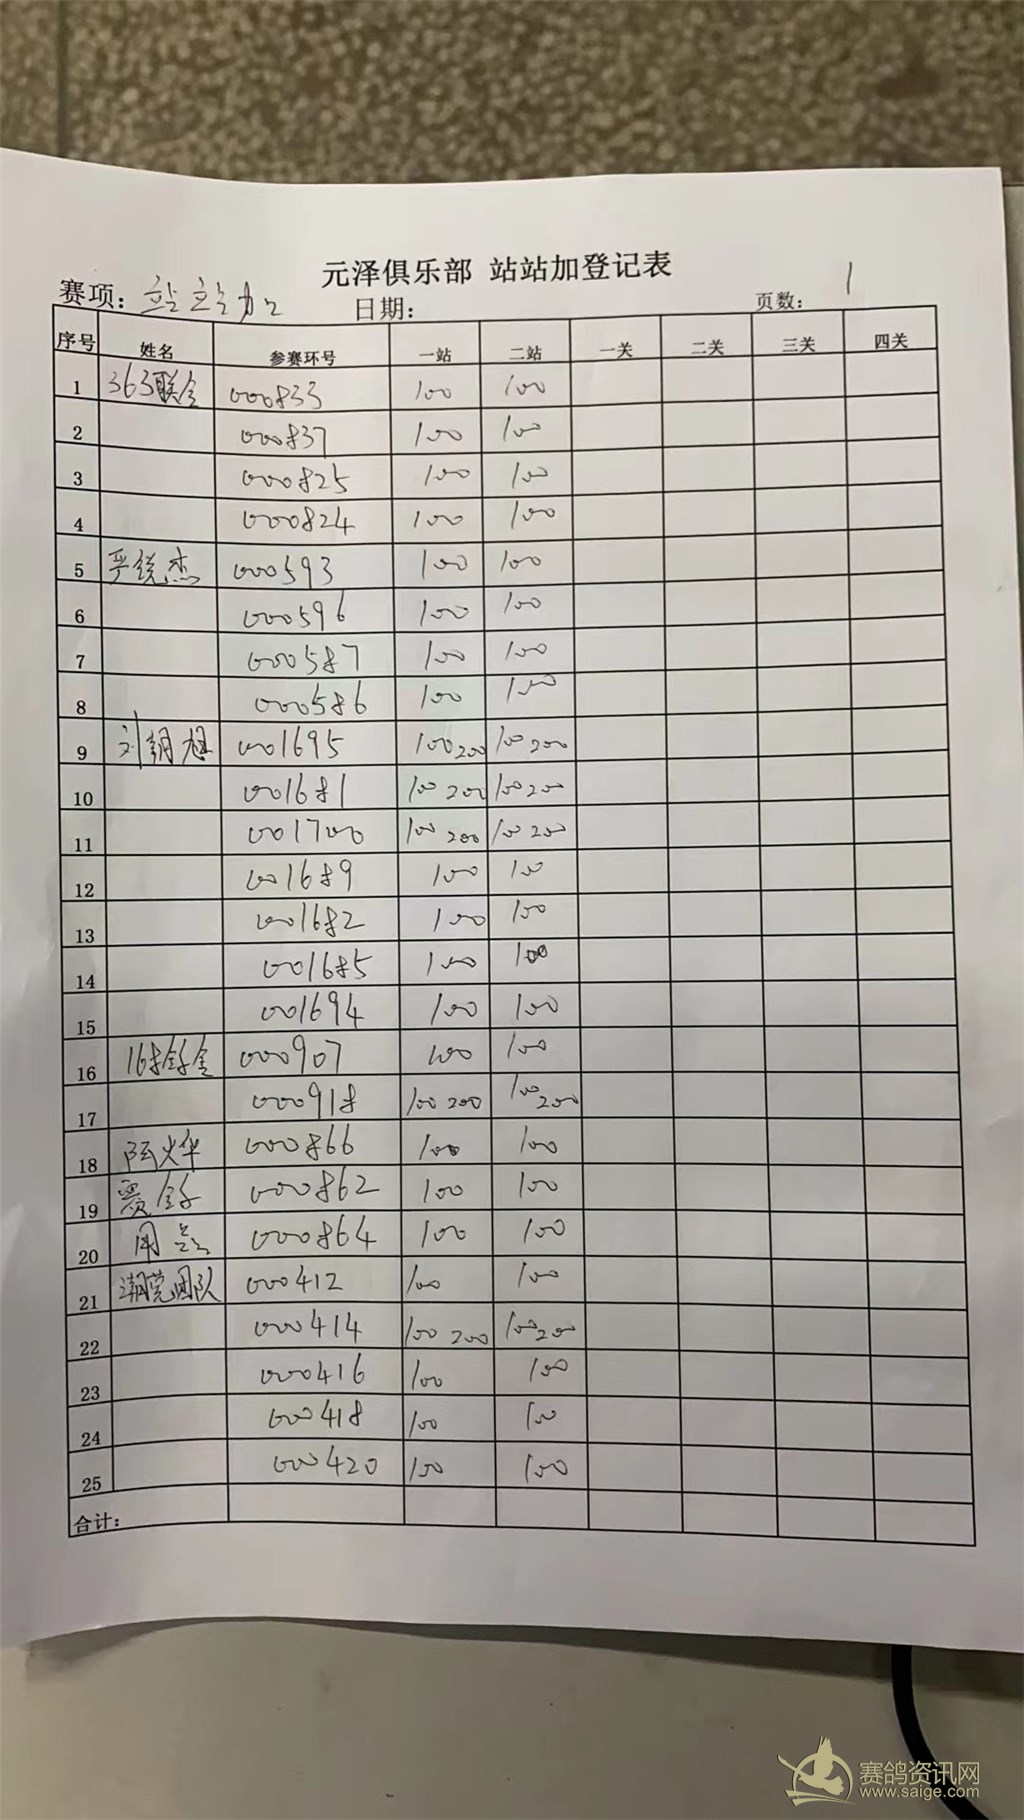 元泽俱乐部 站站加登记表
赛项: 站站加 日期: 页数: 1
序号 姓名 参赛环号 一站 二站 一关 二关 三关 四关
1 363联合 000833 100 100
2 000837 100 100
3 000825 100 100
4 000824 100 100
5 严锐杰 000593 100 100
6 000596 100 100
7 000587 100 100
8 000586 100 100
9 刘朝旭 001695 100 200 100 200
10 001681 100 200 100 200
11 001700 100 200 100 200
12 001689 100 100
13 001682 100 100
14 001685 100 100
15 001694 100 100
16 168 000907 100 100
17 000918 100 200 100 200
18 000866 100 100
19 000862 100 100
20 000864 100 100
21 潮莞团队 000412 100 100
22 000414 100 200 100 200
23 000416 100 100
24 000418 100 100
25 000420 100 100
合计:
赛鸽资讯网
www.saige.com